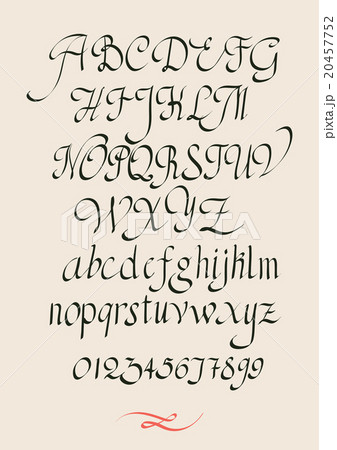 ABCDEFG
HIJKLM
NOPQRSTUV
WXYZ
abcdefghijklm
nopqrstuvwxyz
0123456789
PIXTA
pixta.jp - 20457752